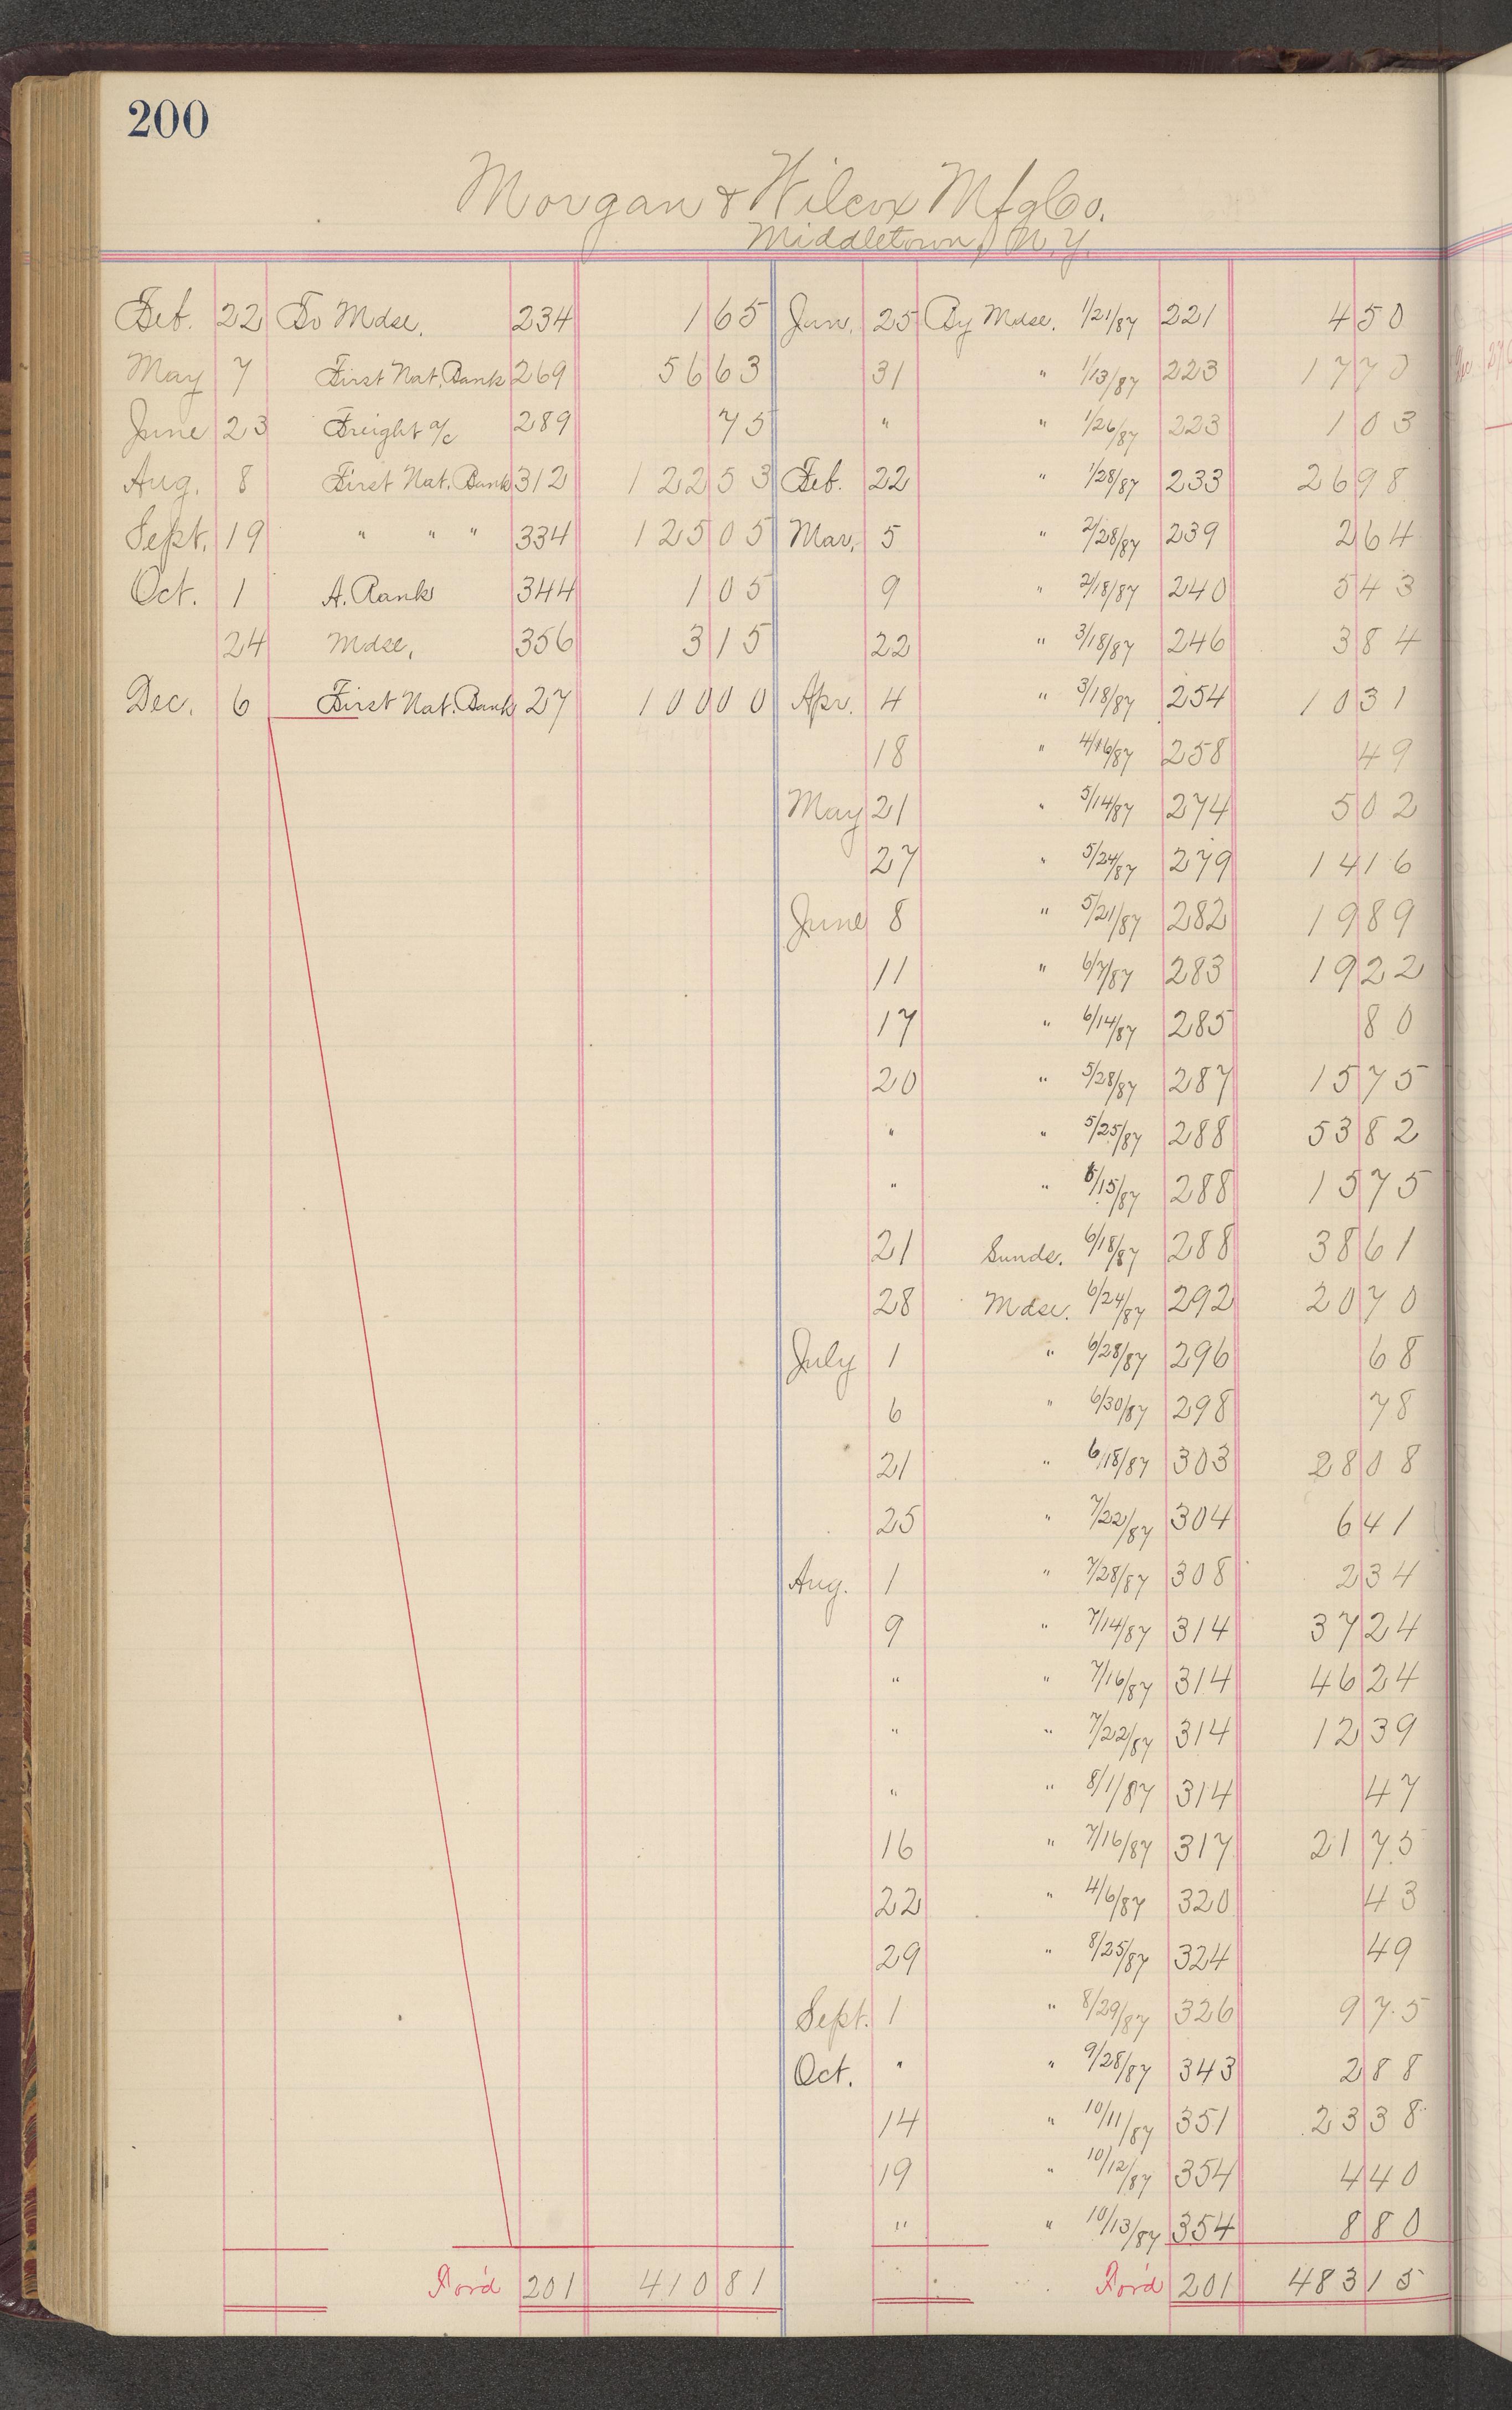 200
Morgan & Wilcox Mfg Co.
Middletown, N.Y.
Feb. 22 To Mdse. 234 1 65 Jan. 25 By Mdse. 1/21/87 221 4 50
May 7 First Nat. Bank 269 56 63 31 " 1/13/87 223 17 70
June 23 Freight a/c 289 75 " " 1/26/87 223 1 03
Aug. 8 First Nat. Bank 312 122 53 Feb. 22 " 1/28/87 233 26 98
Sept. 19 " " " 334 125 05 Mar. 5 " 2/28/87 239 2 64
Oct. 1 A. Rank 344 1 05 9 " 2/18/87 240 5 43
24 Mdse. 356 3 15 22 " 3/18/87 246 3 84
Dec. 6 First Nat. Bank 27 100 00 Apr. 4 " 3/18/87 254 10 31
18 " 4/16/87 258 49
May 21 " 5/14/87 274 5 02
27 " 5/24/87 279 14 16
June 8 " 5/21/87 282 19 89
11 " 6/7/87 283 19 22
17 " 6/14/87 285 80
20 " 5/28/87 287 15 75
" " 5/25/87 288 53 82
" " /15/87 288 15 75
21 Sunds. 6/18/87 288 38 61
28 Mdse. 6/24/87 292 20 70
July 1 " 6/28/87 296 68
6 " 6/30/87 298 78
21 " 6/18/87 303 28 08
25 " 7/22/87 304 6 41
Aug. 1 " 7/28/87 308 2 34
9 " 7/14/87 314 37 24
" " 7/16/87 314 46 24
" " 7/22/87 314 12 39
" " 8/1/87 314 47
16 " 7/16/87 317 21 75
22 " 4/6/87 320 43
29 " 8/25/87 324 49
Sept. 1 " 8/29/87 326 9 75
Oct. " " 9/28/87 343 2 88
14 " 10/11/87 351 23 38
19 " 10/12/87 354 4 40
" " 10/13/87 354 8 80
For'd 201 410 81 For'd 201 483 15